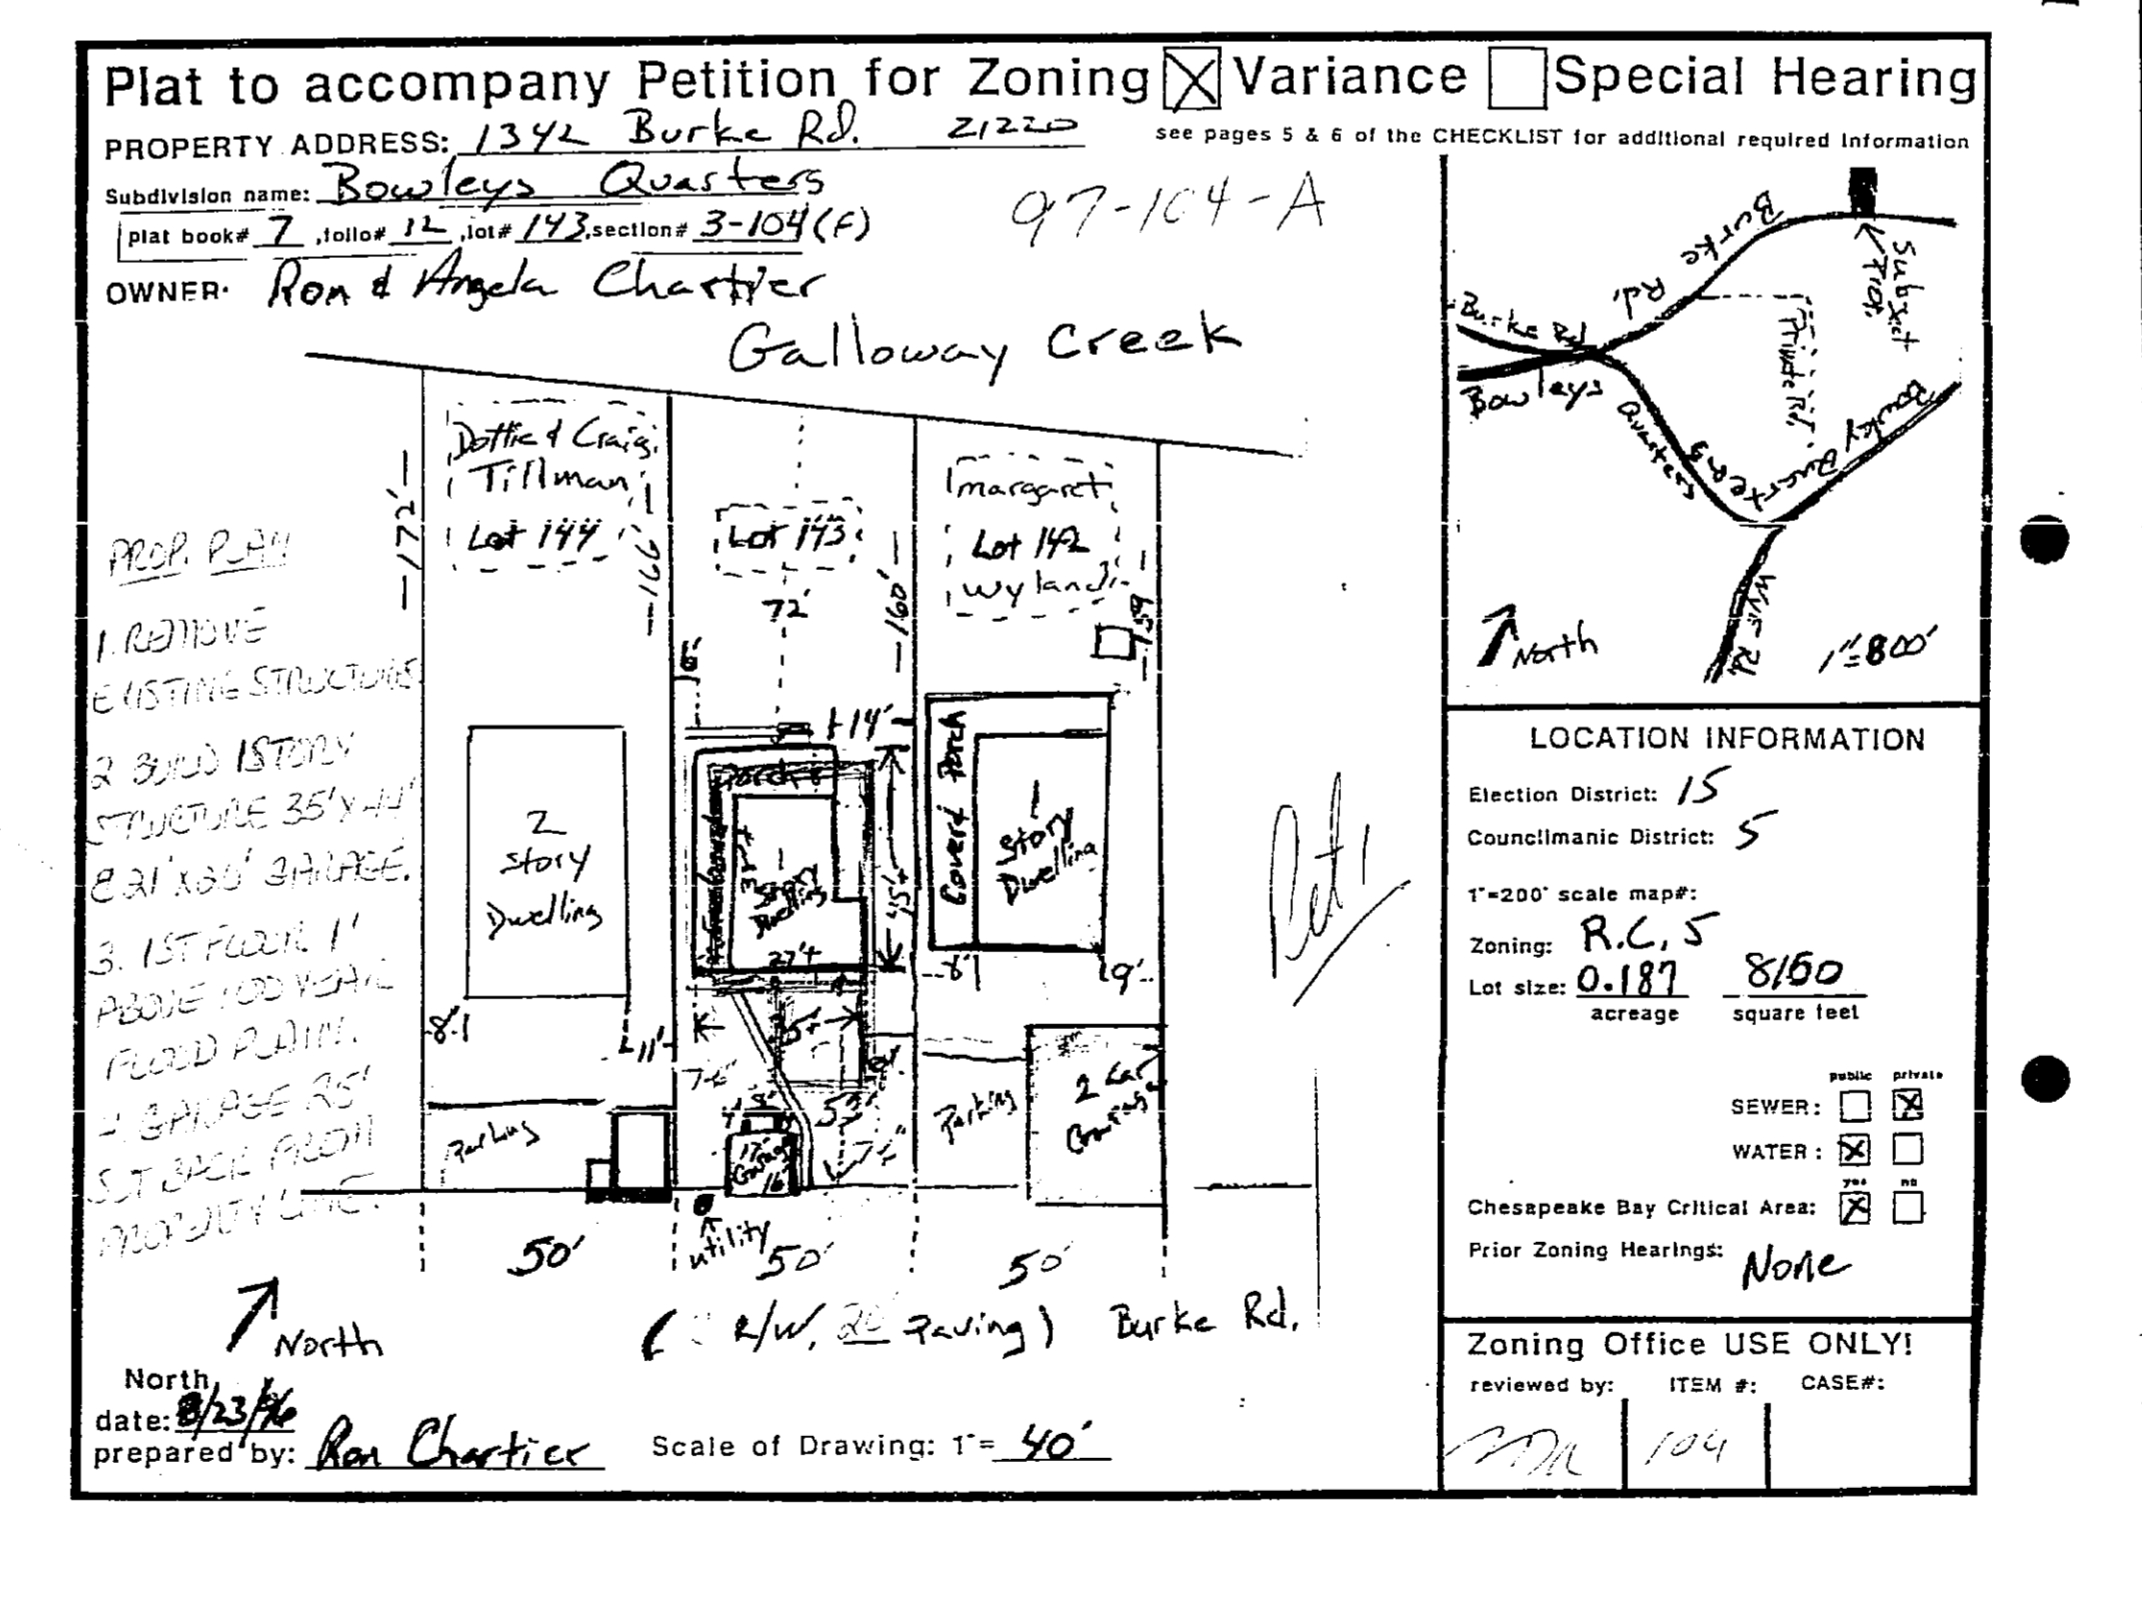 Plat to accompany Petition for Zoning [X] Variance [ ] Special Hearing
PROPERTY ADDRESS: 1342 Burke Rd. 21220
see pages 5 & 6 of the CHECKLIST for additional required information
Subdivision name: Bowleys Quarters
plat book# 7, folio# 12, lot# 143, section# 3-104 (F)
97-104-A
OWNER: Ron & Angela Chartier
Galloway Creek
Dottie & Craig
Tillman
Lot 144
Lot 143
margaret
Lot 142
Wyland
-172'-
-166'-
-160'-
-159
72'
6'
14'
PROP. PLAN
1. REMOVE
EXISTING STRUCTURE
2 BUILD 1STORY
STRUCTURE 35'X44'
& 21'X30' GARAGE.
3. 1ST FLOOR 1'
ABOVE 100 YEAR
FLOOD PLAIN.
4. GARAGE 25'
SET BACK FROM
PROPERTY LINE.
2
Story
Dwelling
Porch
1
Story
Dwelling
27'±
45'±
Coverd Porch
1
Story
Dwelling
8'
9'
8'
11'
53'
Parking
17'
Garage
16'
Parking
2 Car
Garage
utility
50'
50'
50'
Pet 1
(R/W, 20 Paving) Burke Rd.
North
North
date: 8/23/96
prepared by: Ron Chartier
Scale of Drawing: 1"= 40'
Burke Rd.
Subject
Burke Rd
Private Rd.
Bowleys Quarters Rd
Bowley
Quarters
Wye Rd
North
1"=800'
LOCATION INFORMATION
Election District: 15
Councilmanic District: 5
1"=200' scale map#:
Zoning: R.C. 5
Lot size: 0.187 8150
acreage square feet
public private
SEWER: [ ] [X]
WATER: [X] [ ]
yes no
Chesapeake Bay Critical Area: [X] [ ]
Prior Zoning Hearings: None
Zoning Office USE ONLY!
reviewed by: ITEM #: CASE#:
104